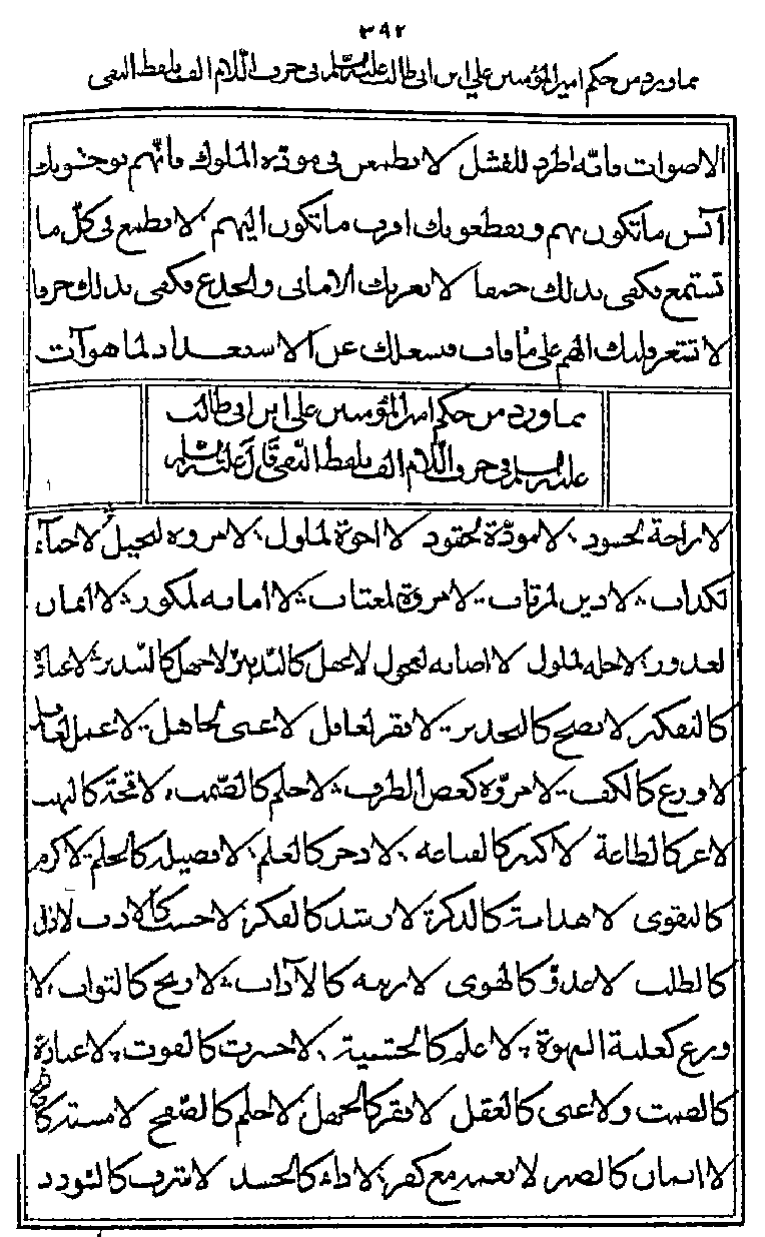 ٣٩٢
مما ورد من حكم امير المؤمنين علي ابن ابي طالب عليه السلم في حرف اللام الف بلفظ النفي
الاصوات فانه اطرد للفشل لا تطمعن في مودة الملوك فانهم يوحشونك
آنس ما تكون بهم ويقطعونك اقرب ما تكون اليهم لا تطمع في كل ما
تستمع فكفى بذلك حمقا لا يغرنك الاماني والخدع فكفى بذلك خرقا
لا تشعر قلبك الهم على ما فات فيشغلك عن الاستعداد لما هو آت
مما ورد من حكم امير المؤمنين علي ابن ابي طالب
عليه السلم في حرف اللام الف بلفظ النفي قال عليه السلم
لا راحة لحسود لا مودة لحقود لا اخوة لملول لا مروة لبخيل لا حياء
لكذاب لا دين لمرتاب لا مروة لمغتاب لا امانة لمكور لا ايمان
لغدور لا خلة لملول لا اصابة لعجول لا عقل كالتدبير لا جهل كالتبذير لا عبادة
كالتفكر لا نصح كالتحذير لا فقر لعاقل لا غنى لجاهل لا عمل لغافل
لا ورع كالكف لا مروة كغض الطرف لا حلم كالصمت لا قحة كالبهت
لا عز كالطاعة لا كنز كالقناعة لا ذخر كالعلم لا فضيلة كالحلم لا كرم
كالتقوى لا هداية كالذكر لا رشد كالفكر لا حسب كالادب لا ذل
كالطلب لا عدو كالهوى لا زينة كالآداب لا ربح كالثواب لا
ورع كغلبة الشهوة لا علم كالخشية لا حسرت كالفوت لا عبادة
كالصمت ولا غنى كالعقل لا فقر كالجهل لا حلم كالصفح لا
لا ايمان كالصبر لا نعمة مع كفر لا داء كالحسد لا شرف كالسودد